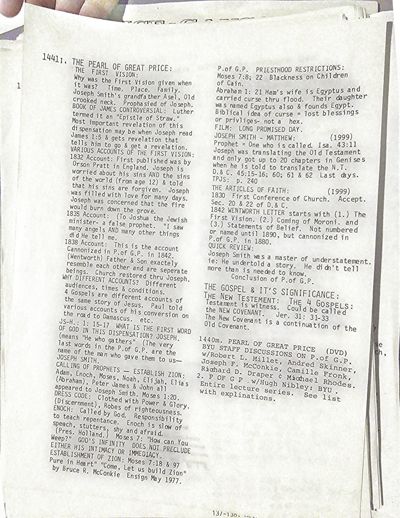 1441r. THE PEARL OF GREAT PRICE:
THE FIRST VISION:
Why was the First Vision given when
it was? Time. Place. Family.
Joseph Smith's grandfather Asel, Old
crooked neck. Prophasied of Joseph.
BOOK OF JAMES CONTROVERSIAL: Luther
termed it an "Epistle of Straw."
Most important revelation of this
dispensation may be when Joseph read
James 1:5 & gets revelation that
tells him to go & get a revelation.
VARIOUS ACCOUNTS OF THE FIRST VISION:
1832 Account: First published was by
Orson Pratt in England. Joseph is
worried about his sins AND the sins
of the world (from age 12) & told
that his sins are forgiven. Joseph
was filled with love for many days.
Joseph was concerned that the fire
would burn down the grove.
1835 Account: (To Joshua the Jewish
minister- a false prophet. "I saw
many angels AND many other things
did He tell me."
1838 Account: This is the account
Cannonized in P.of G.P. in 1842.
(Wentworth) Father & Son exactely
resemble each other and are seperate
beings. Church restored thru Joseph.
WHY DIFFERENT ACCOUNTS? Different
audiences, times & conditions.
& Gospels are different accounts of
the same story of Jesus. Paul told
various accounts of his conversion on
the road to Damascus. etc.
JS-H.. 1: 15-17 WHAT IS THE FIRST WORD
OF GOD IN THIS DISPENSATION? JOSEPH!
(means "He who gathers" (The very
last words in the P.of G.P. are the
name of the man who gave them to us—
JOSEPH SMITH.
CALLING OF PROPHETS — ESTABLISH ZION:
Adam, Enoch, Moses, Noah, Elijah, Elias
(Abraham), Peter James & John all
appeared to Joseph Smith. Moses 1:20.
DRESS CODE: Clothed with Power & Glory.
(Discernment), Robes of righteousness.
ENOCH: Called by God. Responsibility
to teach repentance. Enoch is slow of
speech, stutters, shy and afraid.
(Pres. Holland.) Moses 7: "How can You
Weep?" GOD'S INFINITY DOES NOT PRECLUDE
EITHER HIS INTIMACY OR IMMEDIACY.
ESTABLISHMENT OF ZION: Moses 7:18 & 97
Pure in Heart" "Come, Let us build Zion"
by Bruce R. McConkie Ensign May 1977.
P.of G.P. PRIESTHOOD RESTRICTIONS:
Moses 7:8; 22 Blackness on Children
of Cain.
Abraham 1: 21 Ham's wife is Egyptus and
carried curse thru flood. Their daughter
was named Egyptus also & founds Egypt.
Biblical idea of curse = lost blessings
or privliges- not a hex.
FILM: LONG PROMISED DAY.
JOSEPH SMITH - MATTHEW: (1999)
Prophet = One who is called. Isa. 43:11
Joseph was translating the Old Testament
and only got up to 20 chapters in Genises
when he is told to translate the N.T.
D.& C. 45:15-16; 60; 61 & 62 Last days.
TPJS: p. 240
THE ARTICLES OF FAITH: (1999)
1830 First Conference of Church. Accept.
Sec. 20 & 22 of D.& C.
1842 WENTWORTH LETTER starts with (1.) The
First Vision. (2.) Coming of Moroni. and
(3.) Statements of Belief. Not numbered
or named until 1890, but cannonized in
P.of G.P. in 1880.
QUICK REVIEW:
Joseph Smith was a master of understatement.
ie: He undertold a story. He didn't tell
more than is needed to know.
Conclusion of P.of G.P.
THE GOSPEL & IT'S SIGNIFICANCE:
THE NEW TESTAMENT: THE 4 GOSPELS:
Testament is witness. Could be called
the NEW COVENANT. Jer. 31: 31-33
The New Covenant is a continuation of the
Old Covenant.
1440m. PEARL OF GREAT PRICE (DVD)
BYU STAFF DISCUSSIONS ON P.of G.P.
w/Robert L. Millet, Andrew Skinner,
Joseph F. McConkie, Camille Fronk,
Richard D. Draper & Michael Rhodes.
2. P OF G P w/Hugh Nibley: BYU
Entire lecture series. See list
with explinations.